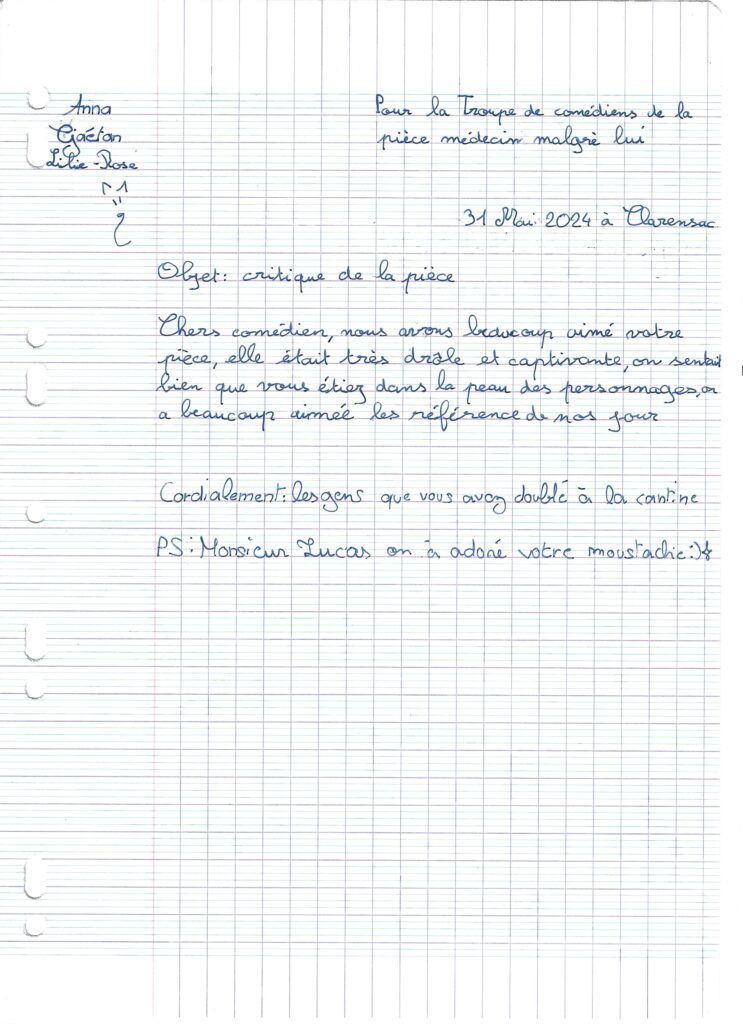 Anna
Gaétan
Lilie-Rose
Pour la Troupe de comédiens de la
pièce médecin malgrè lui
31 Mai 2024 à Clarensac
Objet: critique de la pièce
Chers comédien, nous avons beaucoup aimé votre
pièce, elle était très drôle et captivante, on sentait
bien que vous étiez dans la peau des personnages, on
a beaucoup aimée les référence de nos jour
Cordialement: les gens que vous avez doublé à la cantine
PS: Monsieur Lucas on à adoré votre moustache :)